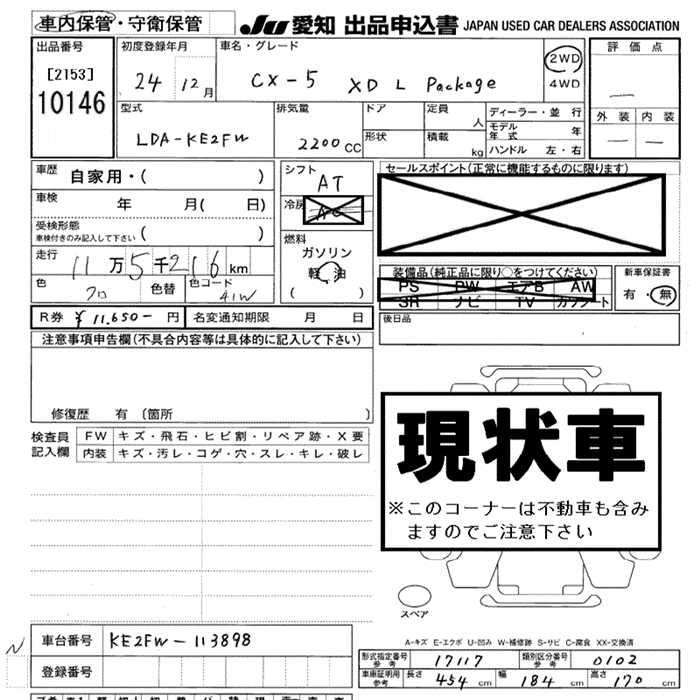 車内保管・守衛保管
JU 愛知 出品申込書 JAPAN USED CAR DEALERS ASSOCIATION
出品番号
[2153]
10146
初度登録年月
24 12月
車名・グレード
CX-5 XD L Package
2WD
4WD
評価点
外装 内装
型式
LDA-KE2FW
排気量
2200 CC
ドア
形状
定員 人
積載 kg
ディーラー・並行
モデル年式 年
ハンドル 左・右
車歴
自家用・( )
車検 年 月( 日)
受検形態
車検付きのみ記入して下さい ( )
走行
11万5千216km
色
クロ
色替
色コード
41W
シフト
AT
冷房
AC
燃料
ガソリン
軽油
( )
セールスポイント(正常に機能するものに限ります)
装備品(純正品に限り○をつけてください)
PS PW エアB AW
SR ナビ TV カワシート
新車保証書
有・無
R券 ¥11,650- 円
名変通知期限 月 日
後日品
注意事項申告欄(不具合内容等は具体的に記入して下さい)
修復歴 有 〔箇所 〕
検査員記入欄
FW キズ・飛石・ヒビ割・リペア跡・X要
内装 キズ・汚レ・コゲ・穴・スレ・キレ・破レ
現状車
※このコーナーは不動車も含み
ますのでご注意下さい
スペア
A-キズ E-エクボ U-凹み W-補修跡 S-サビ C-腐食 XX-交換済
N
車台番号 KE2FW-113898
登録番号
形式指定番号 参考 17117
類別区分番号 参考 0102
車庫証明用 参考 長さ 454cm 幅 184cm 高さ 170cm